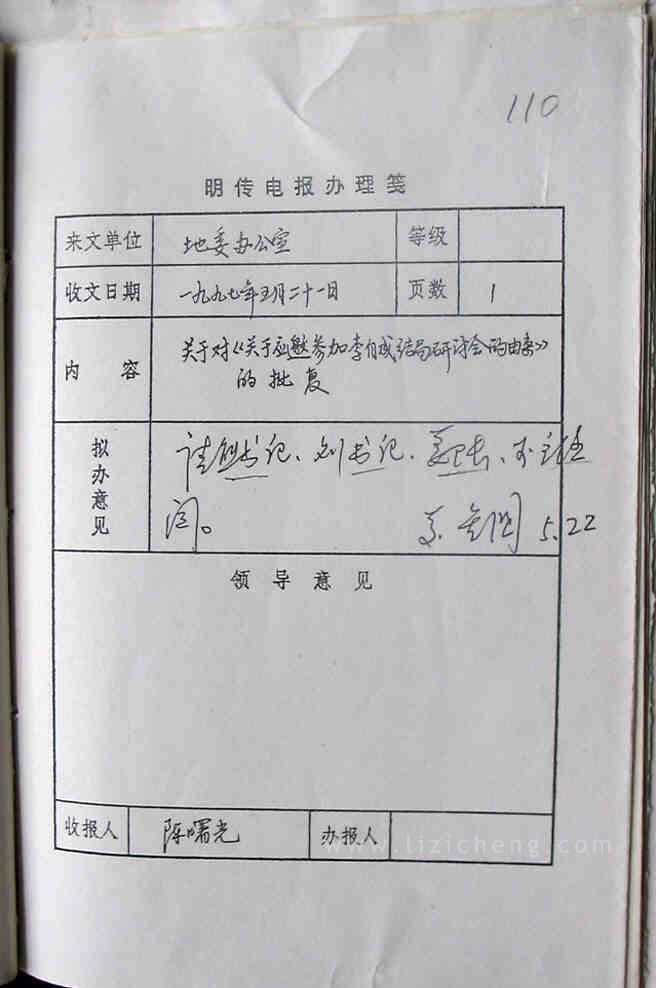 110
明传电报办理笺
来文单位 地委办公室 等级
收文日期 一九九七年五月二十一日 页数 1
内容 关于对《关于应邀参加李自成结局研讨会的由来》
的批复
拟办意见 请 书记、刘书记、
阅。 5.22
领导意见
收报人 陈曙光 办报人
www.lizicheng.com